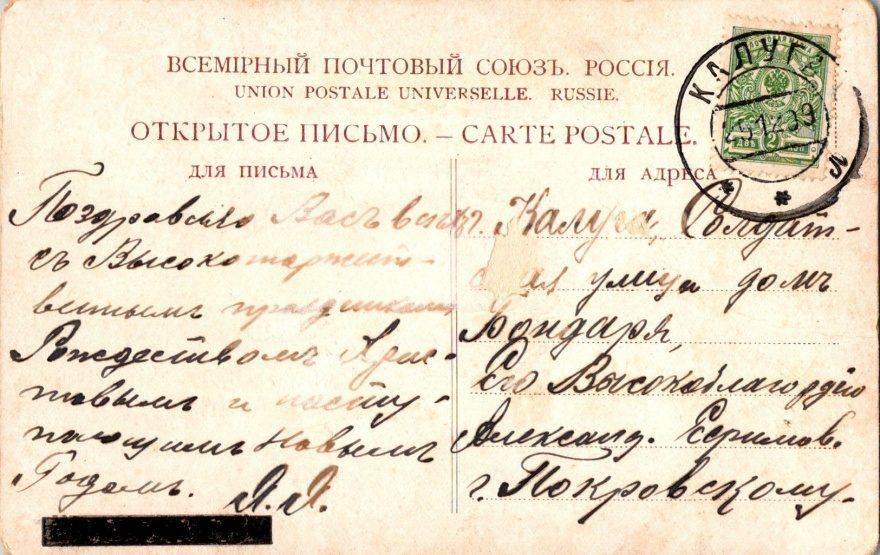 ВСЕМІРНЫЙ ПОЧТОВЫЙ СОЮЗЪ. РОССІЯ.
UNION POSTALE UNIVERSELLE. RUSSIE.
ОТКРЫТОЕ ПИСЬМО. – CARTE POSTALE.
ДЛЯ ПИСЬМА
Поздравляю Васъ всѣхъ
съ Высокоторжест-
веннымъ праздникомъ
Рождествомъ Хрис-
товымъ и насту-
пающимъ Новымъ
Годомъ.
Я. Я.
ДЛЯ АДРЕСА
г. Калуга, Солдат-
ская улица домъ
Бондаря,
Его Высокоблагородію
Александ.
г. Покровскому.
КАЛУГА
2 КОП
ДВѢ